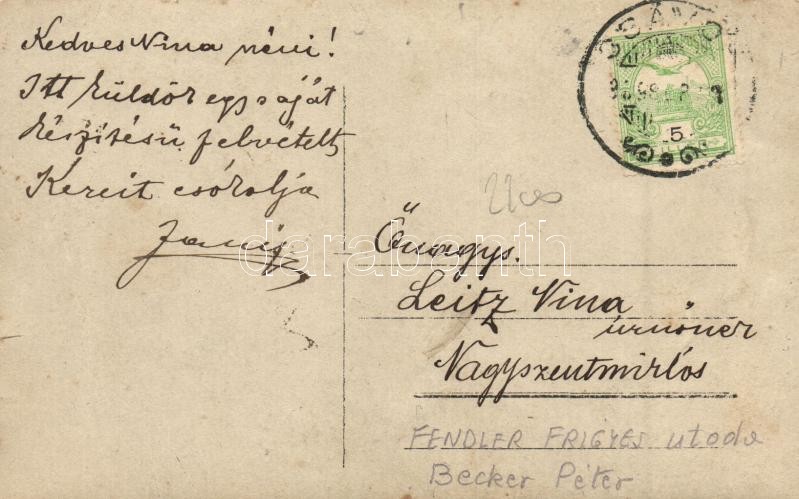 Kedves Nina néni!
Itt küldök egy saját
készítésü felvételt
Kezeit csókolja
Janis
Önagys.
Leitz Nina
úrnőnek
Nagyszentmiklós
FENDLER FRIGYES utoda
Becker Péter
5
darabanth